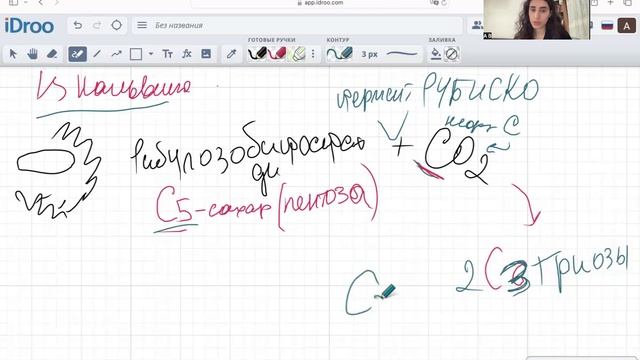 app.idroo.com
iDroo
Без названия
ГОТОВЫЕ РУЧКИ
КОНТУР
ЗАЛИВКА
3 px
Кальвина
фермент РУБИСКО
неорг C
Рибулозобисфосфат + CO2
ди
C5-сахар (пентоза)
2 C3 триозы
C